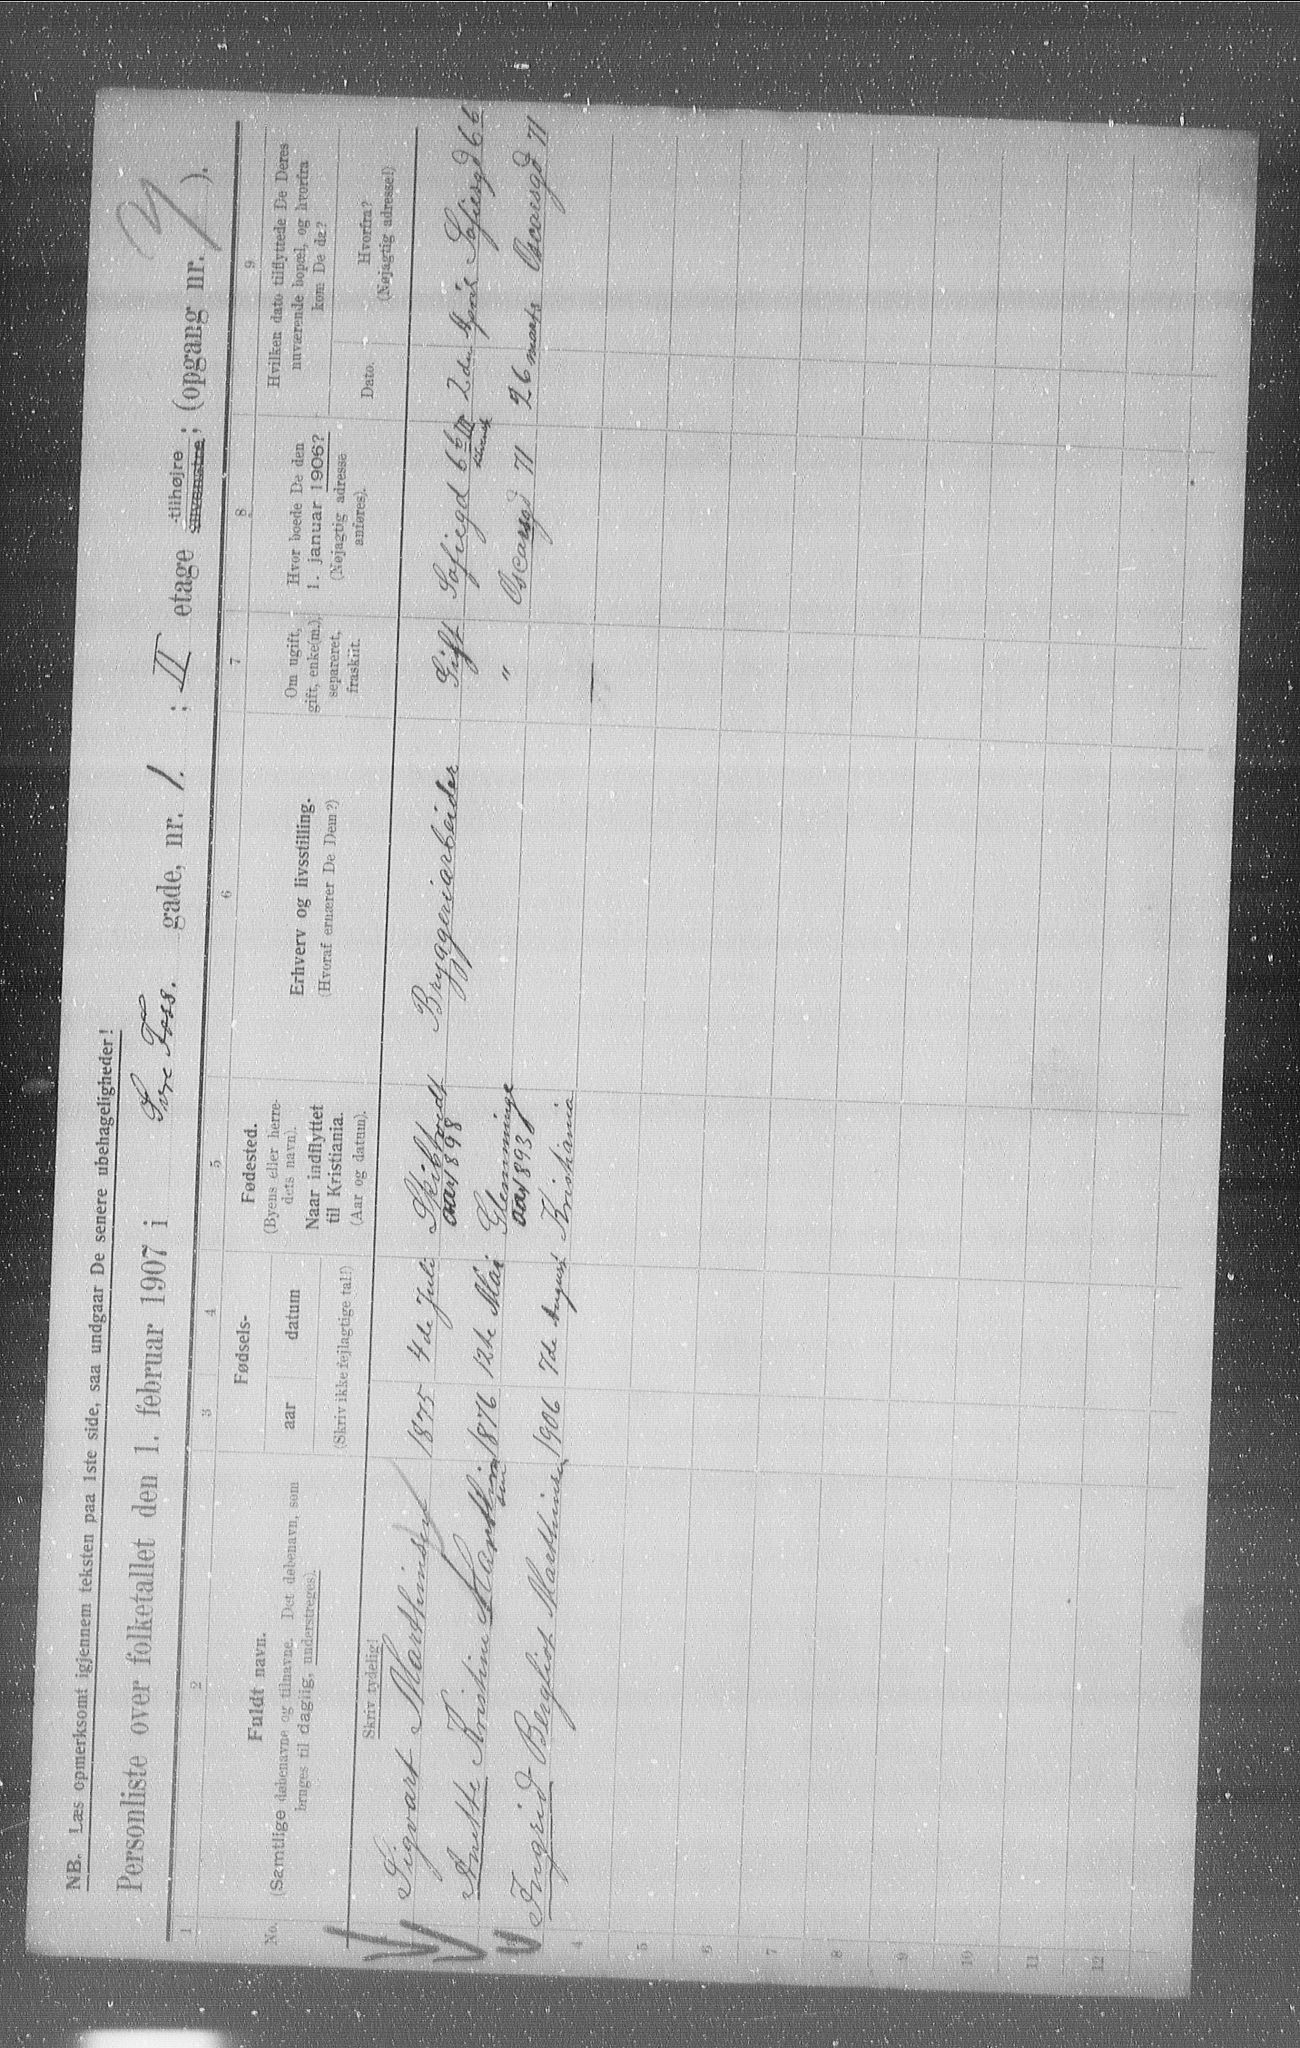 NB. Læs opmerksomt igjennem teksten paa 1ste side, saa undgaar De senere ubehageligheder!
Personliste over folketallet den 1. februar 1907 i Tore Foss. gade, nr. 1. ; II etage tilhøjre tilvenstre; (opgang nr. ).
1 2 3 4 5 6 7 8 9
No.
Fuldt navn.
(Samtlige døbenavne og tilnavne. Det døbenavn, som
bruges til daglig, understreges).
Skriv tydelig!
Fødsels-
aar datum
(Skriv ikke fejlagtige tal!)
Fødested.
(Byens eller herre-
dets navn).
Naar indflyttet
til Kristiania.
(Aar og datum).
Erhverv og livsstilling.
(Hvoraf ernærer De Dem?)
Om ugift,
gift, enke(m.),
separeret,
fraskilt.
Hvor boede De den
1. januar 1906?
(Nøjagtig adresse
anføres).
Hvilken dato tilflyttede De Deres
nuværende bopæl, og hvorfra
kom De da?
Dato.
Hvorfra?
(Nøjagtig adresse!)
Sigvart Marthinsen 1875 4de Juli Skibtvedt Bryggeriarbeider Gift Sofiegd 66 III 2den April Sofiesgd 66
aar 1898
Anette Kristine Marthin 1876 12te Mai Glemminge " Oscarsgd 71 26 marts Oscarsgd 71
sen aar 1893
Ingrid Bergliot Marthinsen 1906 7de August Kristiania
4
5
6
7
8
9
10
11
12